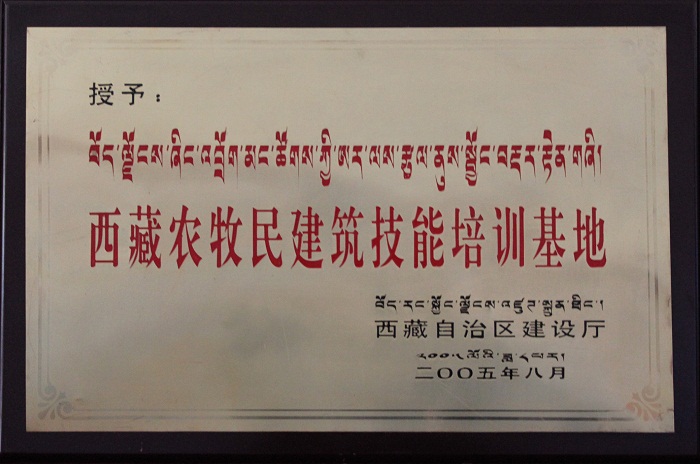 授予：
བོད་ལྗོངས་ཞིང་འབྲོག་མང་ཚོགས་ཀྱི་ཨར་ལས་རྩལ་ནུས་སྦྱོང་བརྡར་རྟེན་གཞི།
西藏农牧民建筑技能培训基地
བོད་རང་སྐྱོང་ལྗོངས་འཛུགས་སྐྲུན་ཐིང་།
西藏自治区建设厅
༢༠༠༥ལོའི་ཟླ་༨པར།
二〇〇五年八月